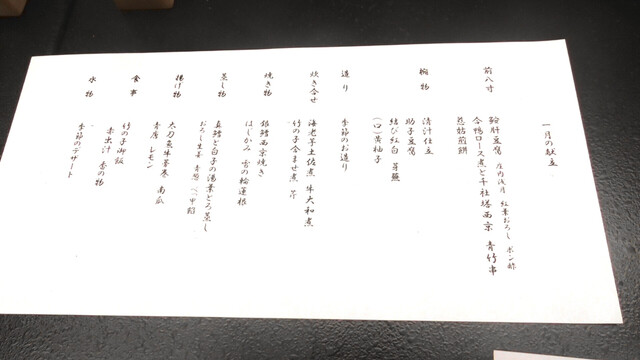 一月の献立
前八寸
鮟肝豆腐 庄内浅月 紅葉おろし ポン酢
合鴨ロース煮と千社塔西京 青竹串
慈姑煎餅
椀物
清汁仕立
助子豆腐
結び紅白 芽蕪
(口)黄柚子
造り
季節のお造り
炊き合せ
海老芋土佐煮 牛大和煮
竹の子含ませ煮 芹
焼き物
銀鱈西京焼き
はじかみ 雪の輪蓮根
蒸し物
真鱈と白子の湯葉とろ蒸し
おろし生姜 青葱 べっ甲餡
揚げ物
太刀魚 南瓜
青唐 レモン
食事
竹の子御飯
赤出汁 香の物
水物
季節のデザート